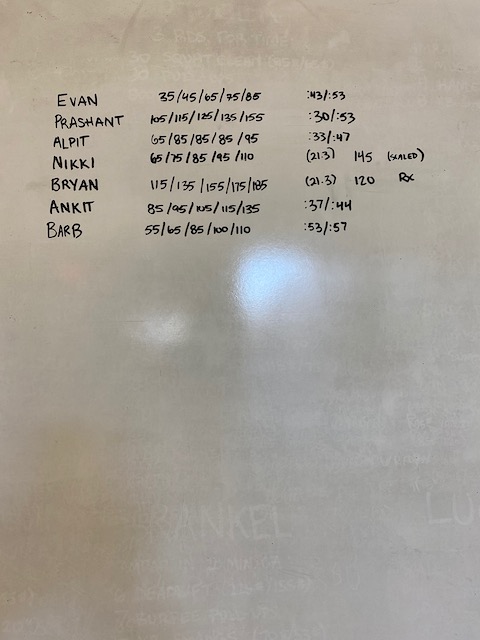 EVAN 35/45/65/75/85 :43/:53
PRASHANT 105/115/125/135/155 :30/:53
ALPIT 65/85/85/85/95 :33/:47
NIKKI 65/75/85/95/110 (21.3) 145 (SCALED)
BRYAN 115/135/155/175/185 (21.3) 120 Rx
ANKIT 85/95/105/115/135 :37/:44
BARB 55/65/85/100/110 :53/:57
ANKEL
LU